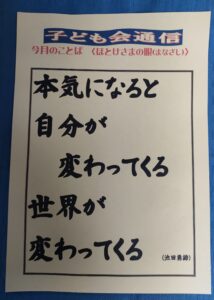 子ども会通信
今月のことば 〈ほとけさまの眼(まなざい)
本気になると
自分が
変わってくる
世界が
変わってくる
(池田勇諦)